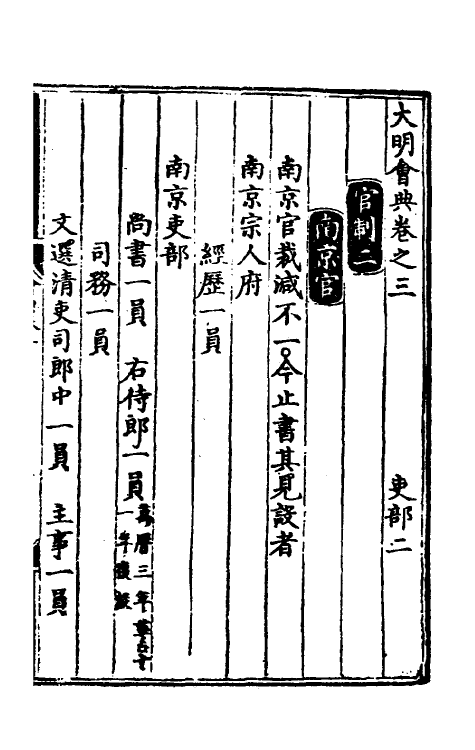 大明會典卷之三 吏部二
官制二
南京官
南京官裁減不一。今止書其見設者
南京宗人府
經歷一員
南京吏部
尚書一員 右侍郎一員 萬曆三年革去十一年復設
司務一員
文選清吏司郎中一員 主事一員